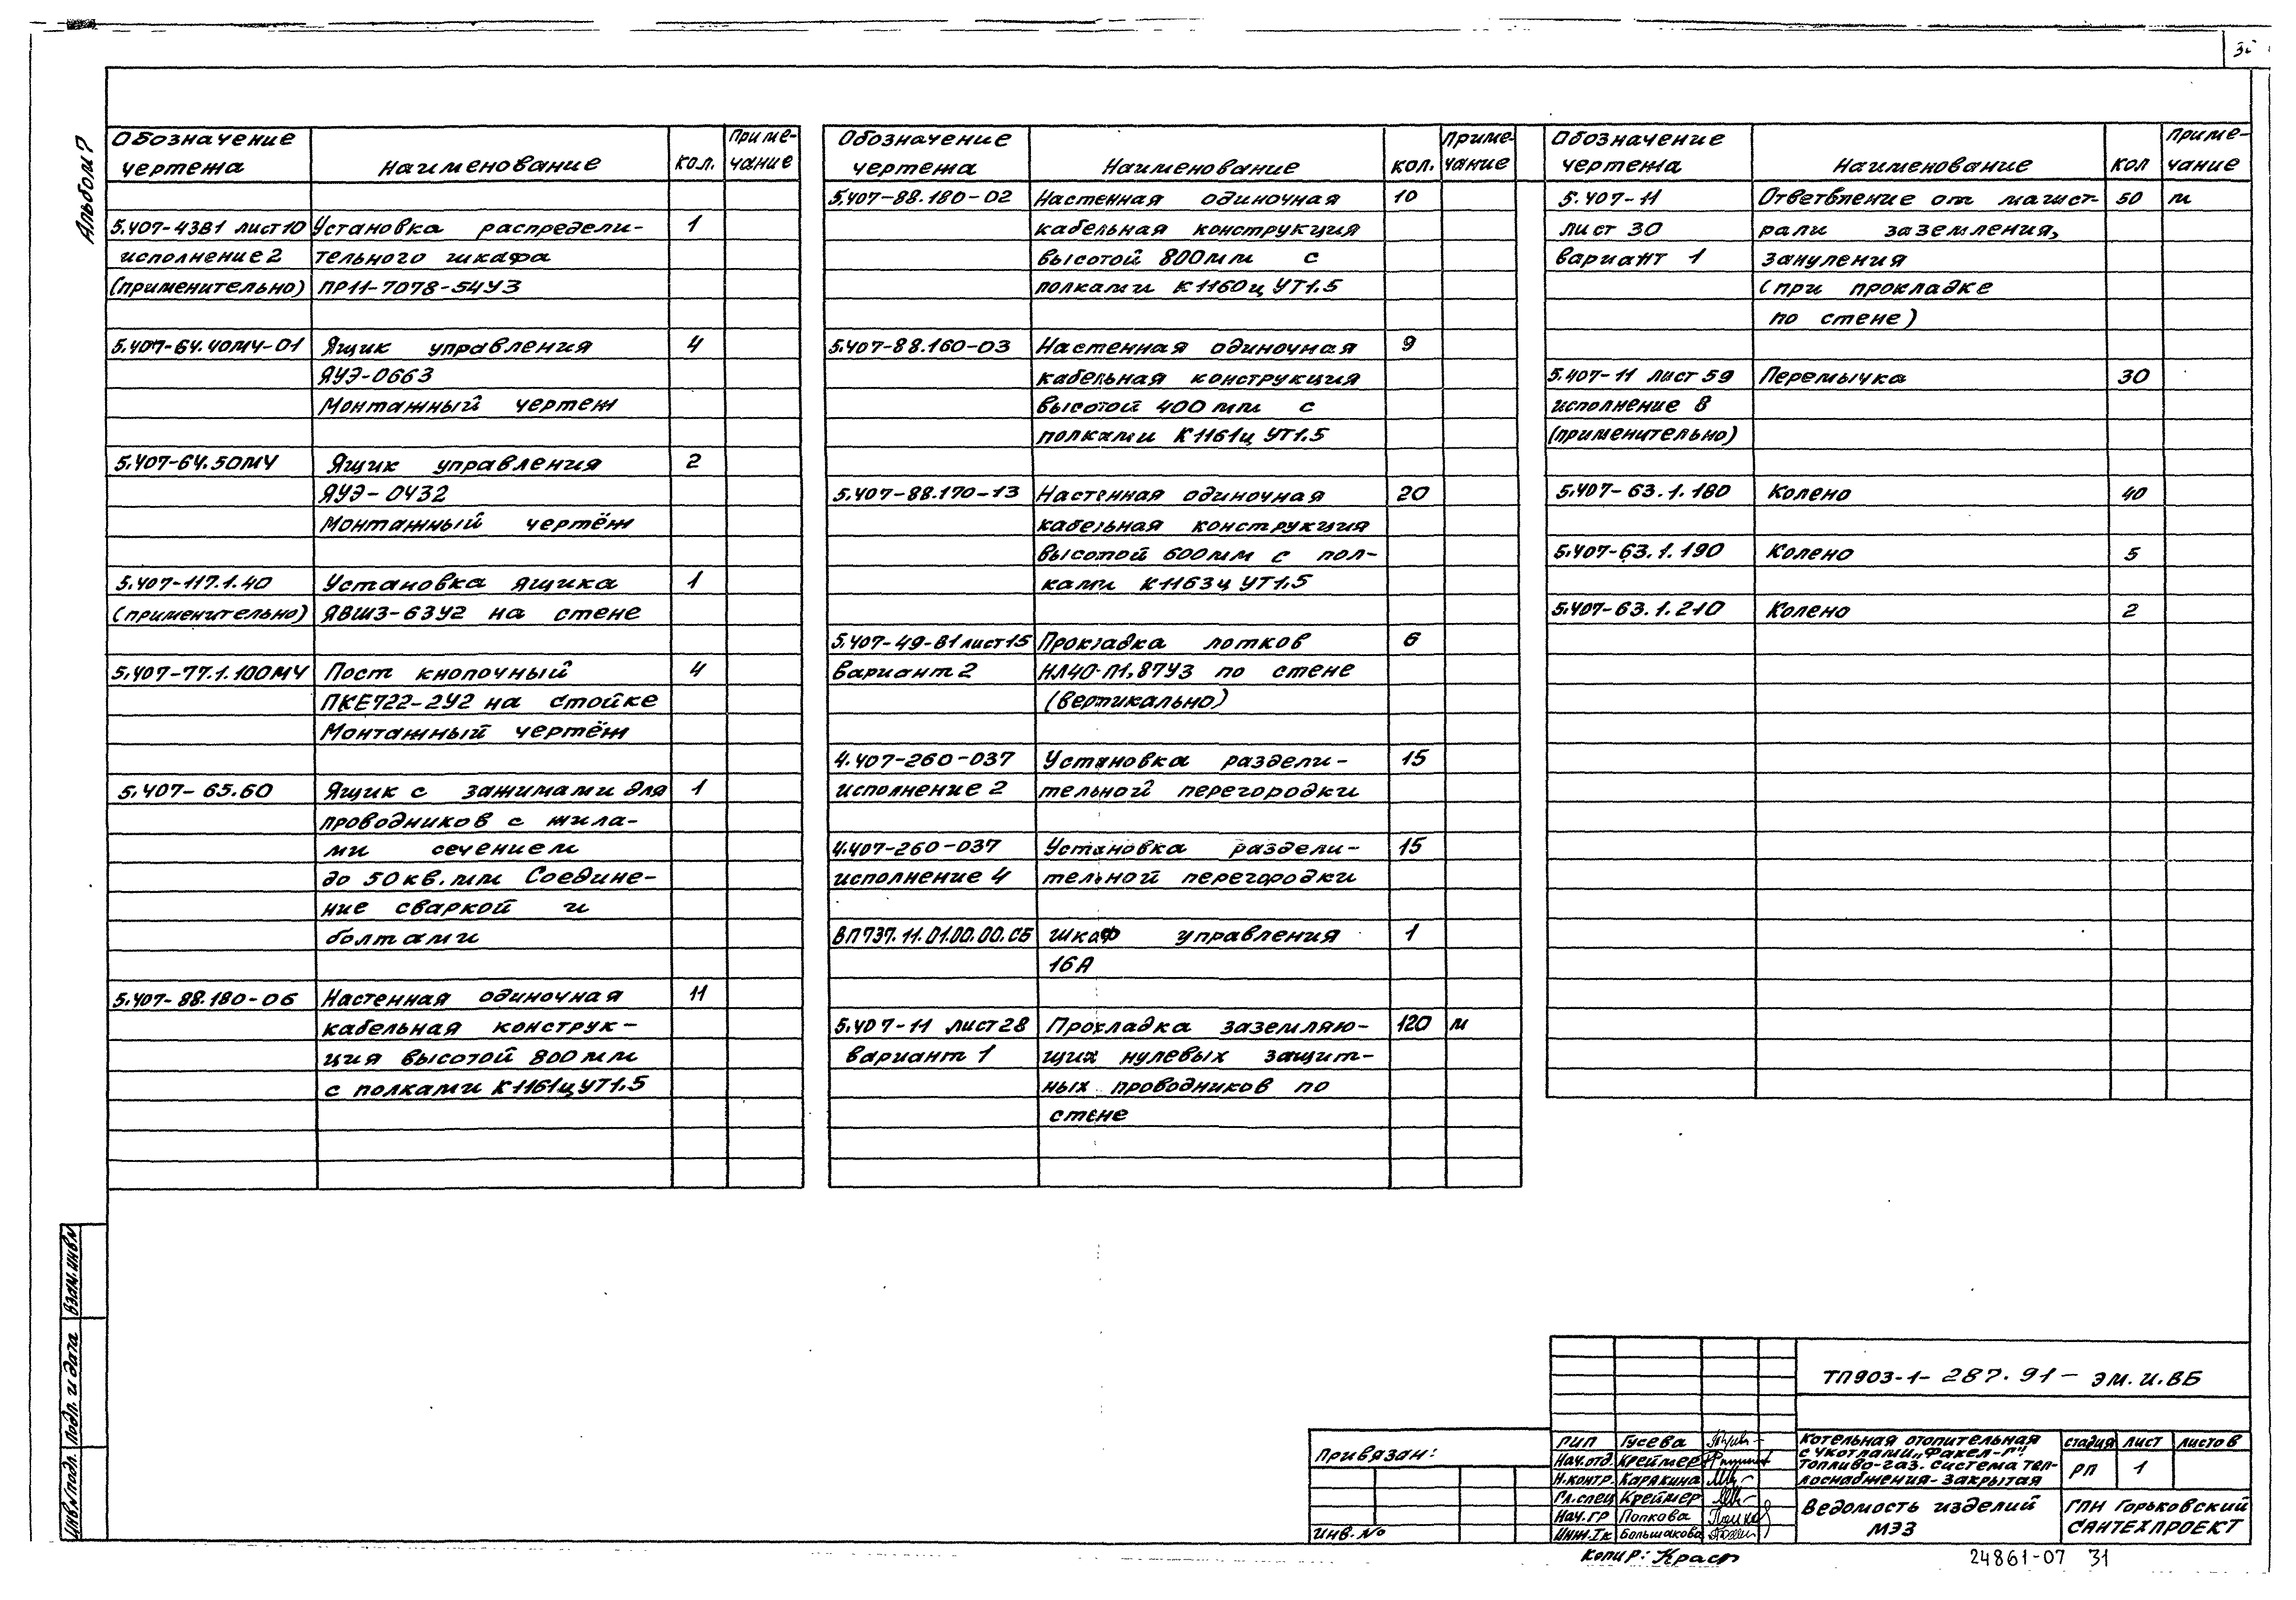 Альбом 7
Обозначение чертежа Наименование кол. Приме-чание
5.407-43В1 лист10 Установка распредели- 1
исполнение 2 тельного шкафа
(применительно) ПР11-7078-54У3
5.407-64.40МЧ-01 Ящик управления 4
ЯУЭ-0663
Монтажный чертеж
5.407-64.50МЧ Ящик управления 2
ЯУЭ-0432
Монтажный чертёж
5.407-117.1.40 Установка ящика 1
(применительно) ЯВШ3-63У2 на стене
5.407-77.1.100МЧ Пост кнопочный 4
ПКЕ722-2У2 на стойке
Монтажный чертёж
5.407-65.60 Ящик с зажимами для 1
проводников с жила-
ми сечением
до 50кв.мм Соедине-
ние сваркой и
болтами
5.407-88.180-06 Настенная одиночная 11
кабельная конструк-
ция высотой 800мм
с полками К1161ц УТ1.5
Обозначение чертежа Наименование кол. Приме-чание
5.407-88.180-02 Настенная одиночная 10
кабельная конструкция
высотой 800мм с
полками К1160ц УТ1.5
5.407-88.160-03 Настенная одиночная 9
кабельная конструкция
высотой 400мм с
полками К1161ц УТ1.5
5.407-88.170-13 Настенная одиночная 20
кабельная конструкция
высотой 600мм с пол-
ками К1163ц УТ1.5
5.407-49-В1 лист15 Прокладка лотков 6
вариант 2 НЛ40-П1,87У3 по стене
(вертикально)
4.407-260-037 Установка раздели- 15
исполнение 2 тельной перегородки
4.407-260-037 Установка раздели- 15
исполнение 4 тельной перегородки
ВП737.11.01.00.00.СБ Шкаф управления 1
16А
5.407-11 лист 28 Прокладка заземляю- 120 м
вариант 1 щих нулевых защит-
ных проводников по
стене
Обозначение чертежа Наименование кол Приме-чание
5.407-11 Ответвление от магист- 50 м
лист 30 рали заземления,
вариант 1 зануления
(при прокладке
по стене)
5.407-11 лист 59 Перемычка 30
исполнение 8
(применительно)
5.407-63.1.180 Колено 40
5.407-63.1.190 Колено 5
5.407-63.1.210 Колено 2
Взам.инв.N
Подп. и дата
Инв.N подл.
Привязан:
Инв.No
ТП903-1-287.91-ЭМ.И.ВБ
ГИП Гусева
Нач.отд. Креймер
Н.контр. Карякина
Гл.спец Креймер
Нач.гр Попкова
Инж.Iк Большакова
Котельная отопительная
с 4котлами „Факел-Г".
Топливо-газ. Система теп-
лоснабжения-закрытая
стадия лист листов
РП 1
Ведомость изделий
МЭЗ
ГПН Горьковский
САНТЕХПРОЕКТ
Копир:
24861-07 31